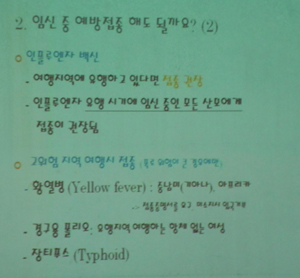 2. 임신 중 예방접종 해도 될까요? (2)
인플루엔자 백신
- 여행지역에 유행하고 있다면 접종 권장
- 인플루엔자 유행 시기에 임신 중인 모든 산모에게
접종이 권장됨
고위험 지역 여행시 접종
- 황열병 (Yellow fever) : 중남미(가이아나), 아프리카
- 경구용 폴리오: 유행지역 여행하는 항체 없는 여성
- 장티푸스 (Typhoid)